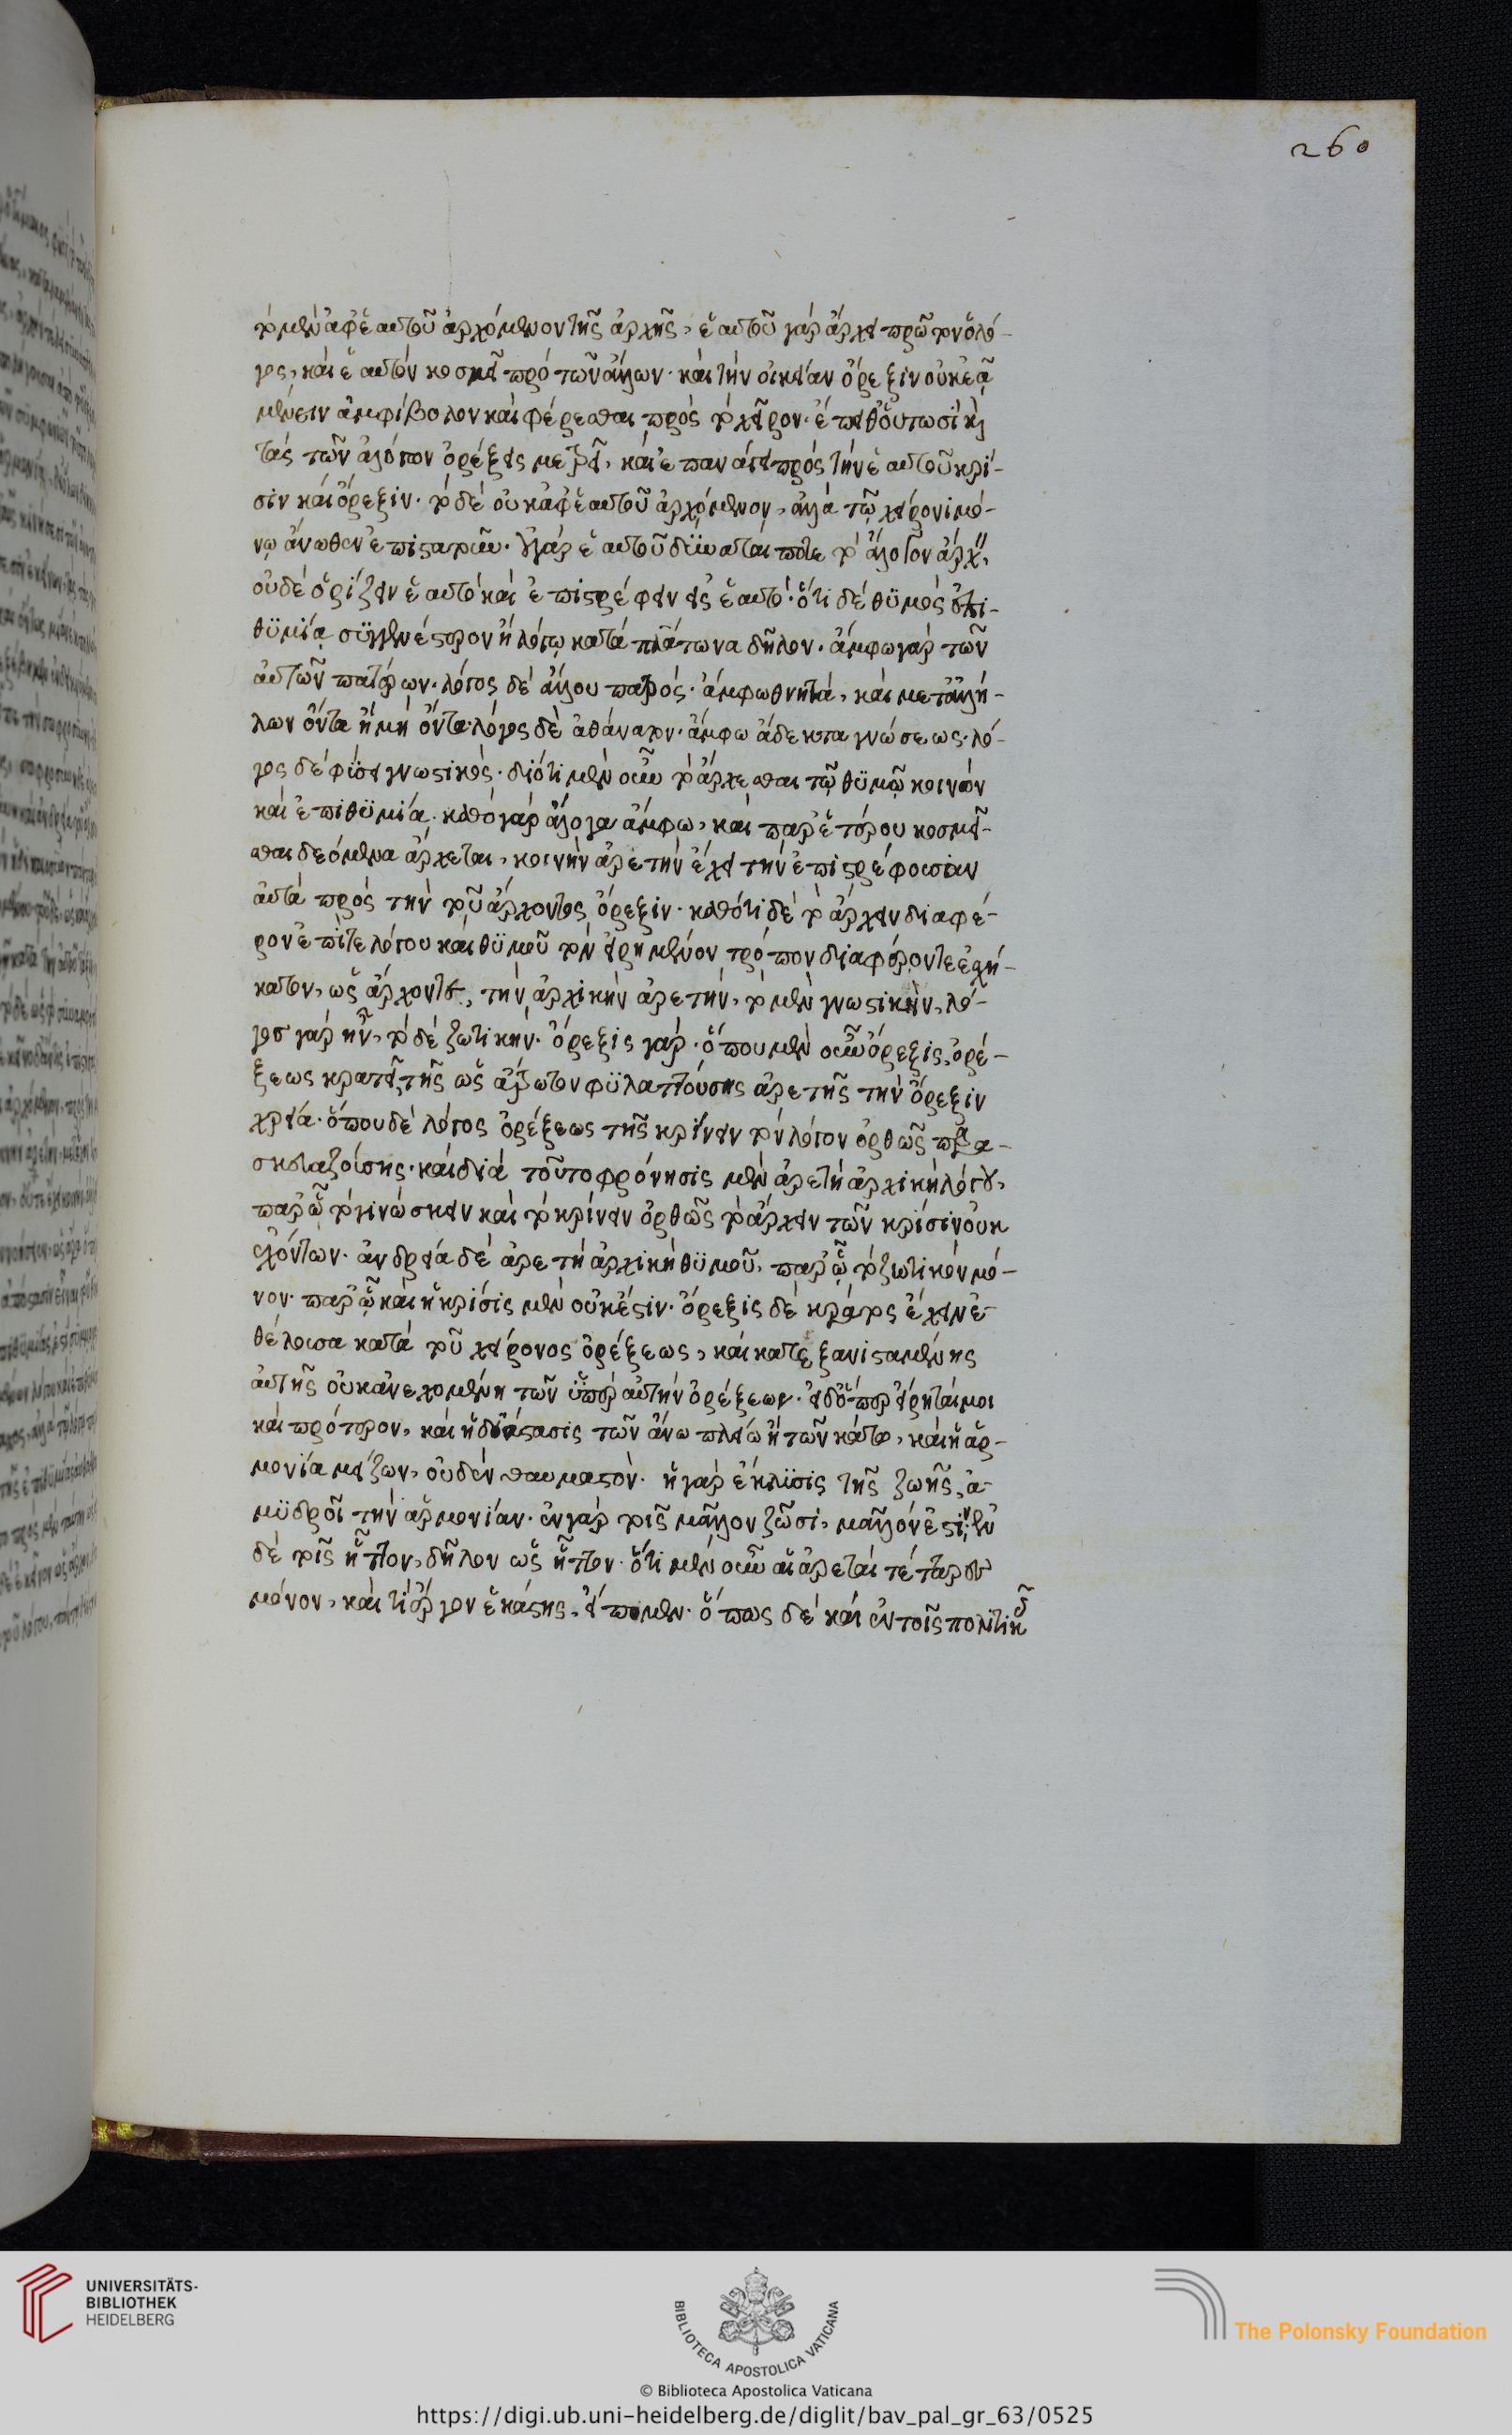 260
τὸ μὲν ἀφ' ἑαυτοῦ ἀρχόμενον τῆς ἀρχῆς, ἑαυτοῦ γὰρ ἄρχει πρῶτον ὁ λό-
γος, καὶ ἑαυτὸν κοσμεῖ πρὸ τῶν ἄλλων. καὶ τὴν οἰκείαν ὄρεξιν οὐκ ἐᾷ
μένειν ἀμφίβολον καὶ φέρεσθαι πρὸς τὸ χεῖρον. ἔπειθ' οὕτωσὶ καὶ
τὰς τῶν ἀλόγων ὀρέξεις μετρεῖ, καὶ ἐπανάγει πρὸς τὴν ἑαυτοῦ κρί-
σιν καὶ ὄρεξιν. τὸ δὲ οὐκ ἀφ' ἑαυτοῦ ἀρχόμενον, ἀλλὰ τῷ χείρονι μό-
νῳ ἄνωθεν ἐπιστατοῦν. οὐ γὰρ ἑαυτοῦ δύναταί ποτε τὸ ἄλογον ἄρχειν,
οὐδὲ ὁρίζειν ἑαυτὸ καὶ ἐπιστρέφειν εἰς ἑαυτό. ὅτι δὲ θυμὸς ἐπι-
θυμίᾳ συγγενέστερον ἢ λόγῳ κατὰ πλάτωνα δῆλον. ἄμφω γὰρ τῶν
αὐτῶν πατέρων. λόγος δὲ ἄλλου πατρός. ἄμφω θνητά, καὶ μετ' ἀλλή-
λων ὄντα ἢ μὴ ὄντα. λόγος δὲ ἀθάνατον. ἄμφω ἄδεκτα γνώσεως. λό-
γος δὲ φύσει γνωστικός. διότι μὲν οὖν τὸ ἄρχεσθαι τῷ θυμῷ κοινὸν
καὶ ἐπιθυμίᾳ. καθὸ γὰρ ἄλογα ἄμφω, καὶ παρ' ἑτέρου κοσμεῖ-
σθαι δεόμενα ἄρχεται, κοινὴν ἀρετὴν ἔχει τὴν ἐπιστρέφουσαν
αὐτὰ πρὸς τὴν τοῦ ἄρχοντος ὄρεξιν. καθότι δὲ τὸ ἄρχειν διαφέ-
ρον ἐπί τε λόγου καὶ θυμοῦ τὸν εἰρημένον τρόπον διαφέροντε εἰλή-
χατον, ὡς ἄρχοντε, τὴν ἀρχικὴν ἀρετήν, τὸ μὲν γνωστικήν, λό-
γος γὰρ ἦν, τὸ δὲ ζωτικήν. ὄρεξις γάρ. ὅπου μὲν οὖν ὄρεξις, ὀρέ-
ξεως κρατεῖ, τῆς ὡς ἄτρωτον φυλαττούσης ἀρετῆς τὴν ὄρεξιν
χρεία. ὅπου δὲ λόγος ὀρέξεως τῆς κρίνειν τὸν λόγον ὀρθῶς παρα-
σκευαζούσης. καὶ διὰ τοῦτο φρόνησις μὲν ἀρετὴ ἀρχικὴ λόγου,
παρ' ᾧ τὸ γινώσκειν καὶ τὸ κρίνειν ὀρθῶς τὸ ἄρχειν τῶν κρίσιν οὐκ
ἐχόντων. ἀνδρεία δὲ ἀρετὴ ἀρχικὴ θυμοῦ, παρ' ᾧ τὸ ζωτικὸν μό-
νον. παρ' ᾧ καὶ ἡ κρίσις μὲν οὐκ ἔστιν. ὄρεξις δὲ κράτος ἔχειν ἐ-
θέλουσα κατὰ τοῦ χείρονος ὀρέξεως, καὶ κατεξανισταμένης
αὐτῆς οὐκ ἀνεχομένη τῶν ὑπὲρ αὐτὴν ὀρέξεων. εἰ δ' ὅπερ εἴρηταί μοι
καὶ πρότερον, καὶ ἡ διάστασις τῶν ἄνω πλείω ἢ τῶν κάτω, καὶ ἡ ἁρ-
μονία μείζων, οὐδὲν θαυμαστόν. ἡ γὰρ ἔκλυσις τῆς ζωῆς, ἀ-
μυδροῖ τὴν ἁρμονίαν. ἐν γὰρ τοῖς μᾶλλον ζῶσι, μᾶλλόν ἐστιν, ἐν
δὲ τοῖς ἧττον, δῆλον ὡς ἧττον. ὅτι μὲν οὖν αἱ ἀρεταὶ τέτταρες
μόνον, καὶ τί ἔργον ἑκάστης, εἴπομεν. ὅπως δὲ καὶ ἐν τοῖς πολιτικοῖς
UNIVERSITÄTS-
BIBLIOTHEK
HEIDELBERG
BIBLIOTECA APOSTOLICA VATICANA
The Polonsky Foundation
© Biblioteca Apostolica Vaticana
https://digi.ub.uni-heidelberg.de/diglit/bav_pal_gr_63/0525